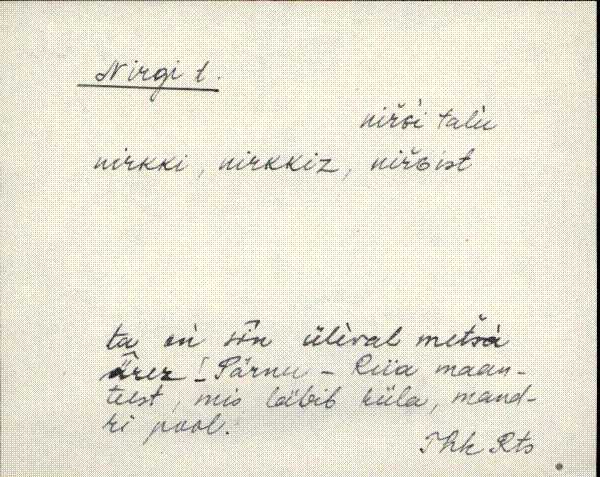 Nirgi t.
nirǵi talu
nirkki, nirkkiz, nirǵist
ta on sîn ülèval metsá
ärez! Pärnu - Riia maan-
teest, mis läbib küla, mand-
ri pool.
Khk Rts